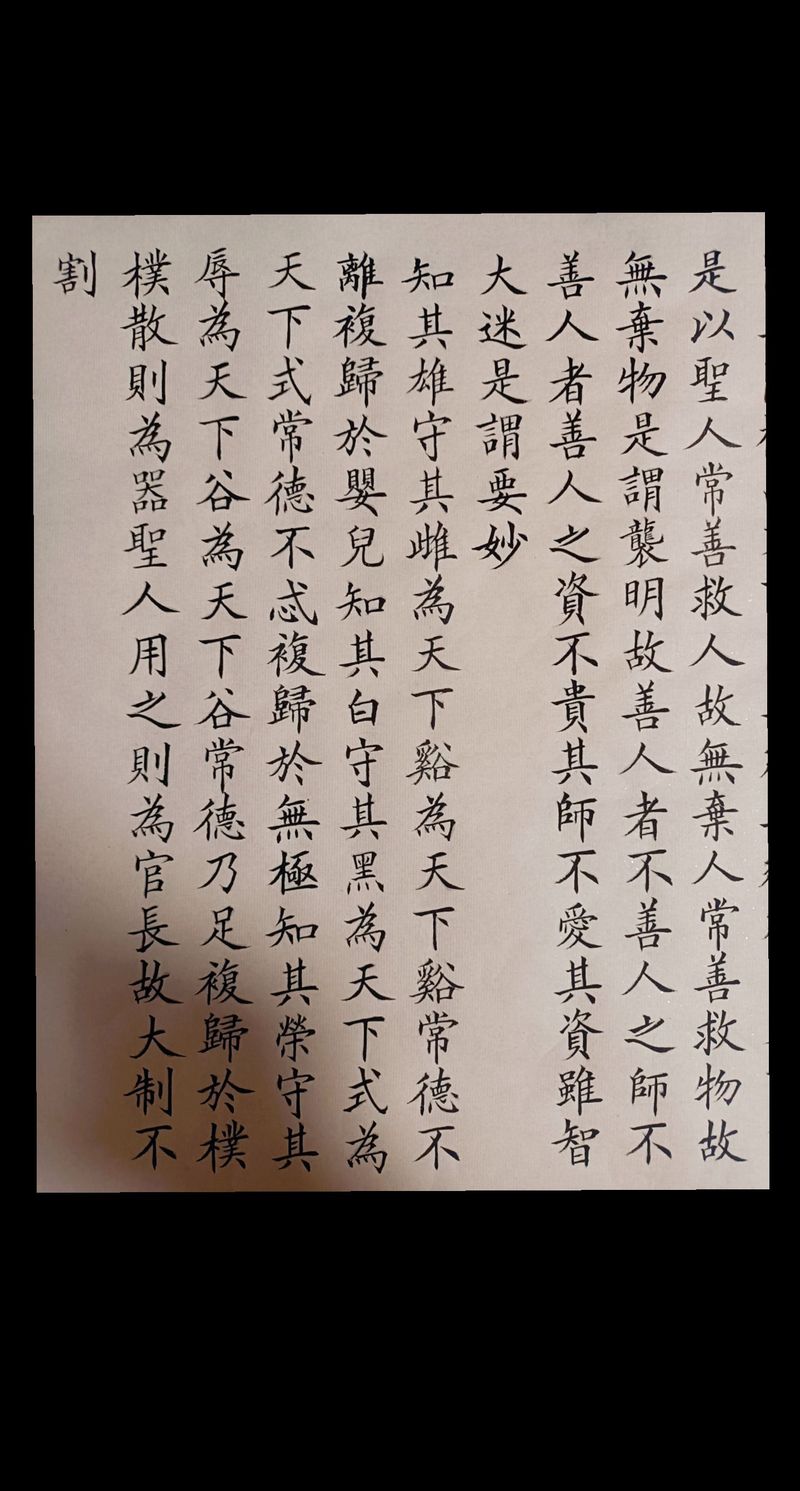 是以聖人常善救人故無棄人常善救物故
無棄物是謂襲明故善人者不善人之師不
善人者善人之資不貴其師不愛其資雖智
大迷是謂要妙
知其雄守其雌為天下谿為天下谿常德不
離複歸於嬰兒知其白守其黑為天下式為
天下式常德不忒複歸於無極知其榮守其
辱為天下谷為天下谷常德乃足複歸於樸
樸散則為器聖人用之則為官長故大制不
割